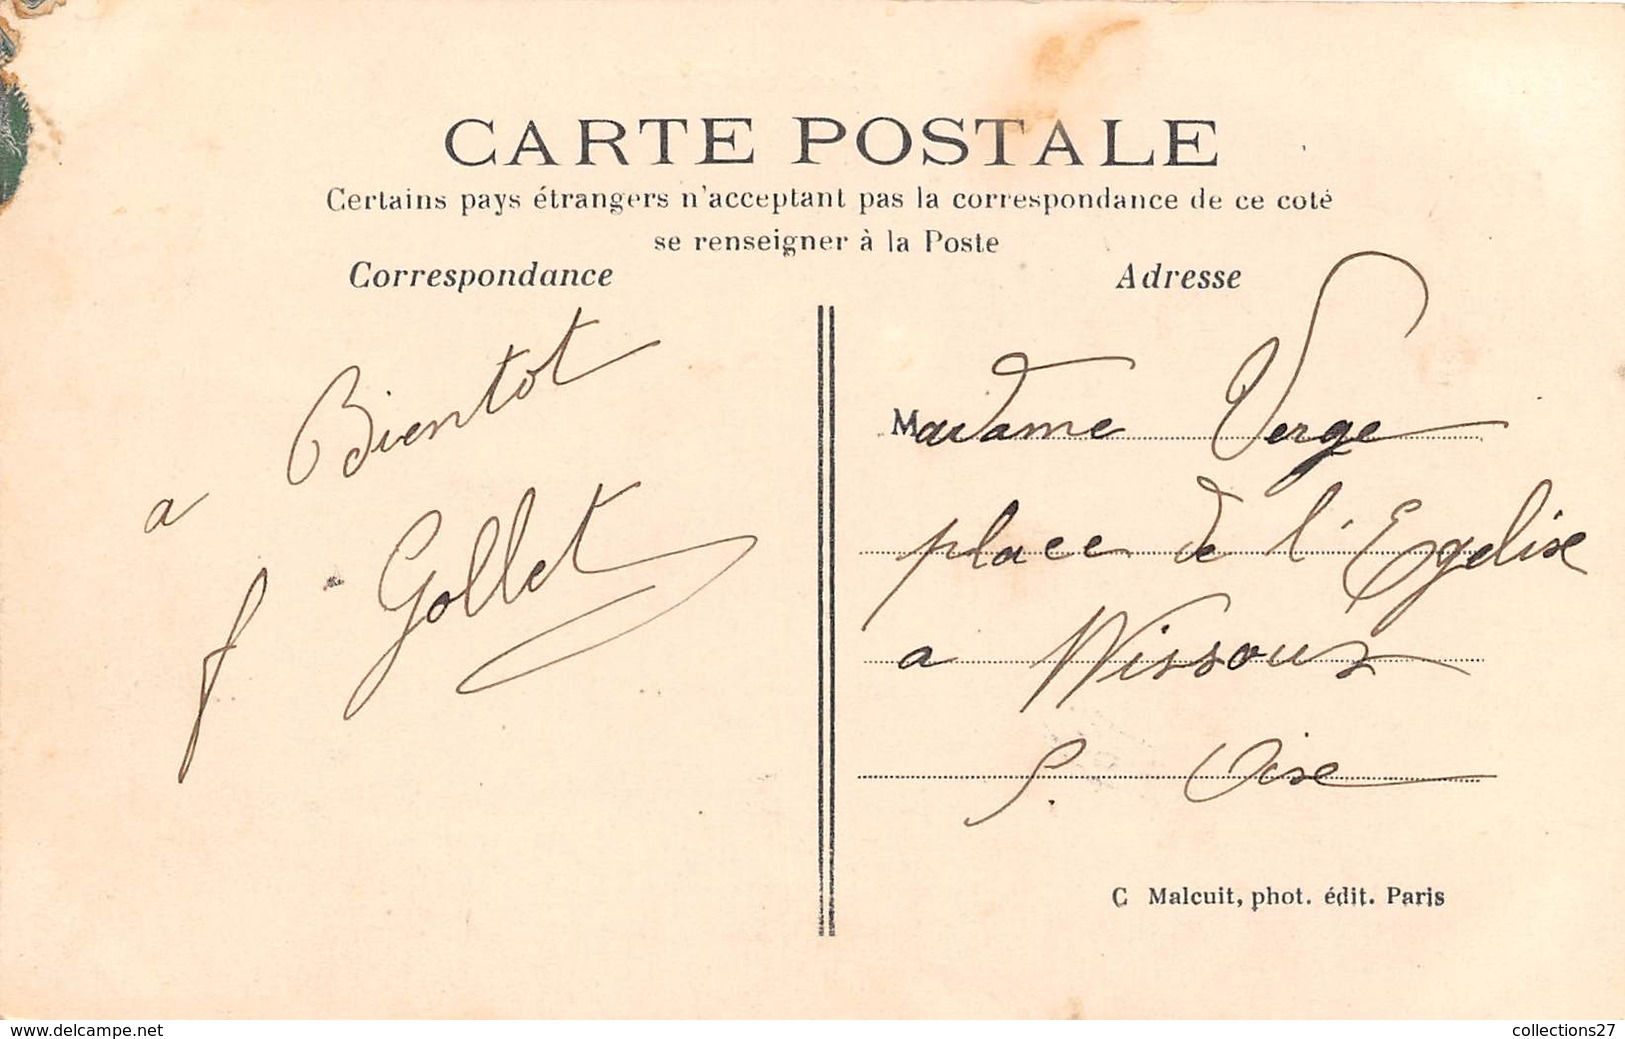 CARTE POSTALE
Certains pays étrangers n'acceptant pas la correspondance de ce coté
se renseigner à la Poste
Correspondance
a Bientot
f Gollet
Adresse
Madame Verge
place de l'Egelise
a Wissous
S. Oise
C Malcuit, phot. édit. Paris
www.delcampe.net
collections27